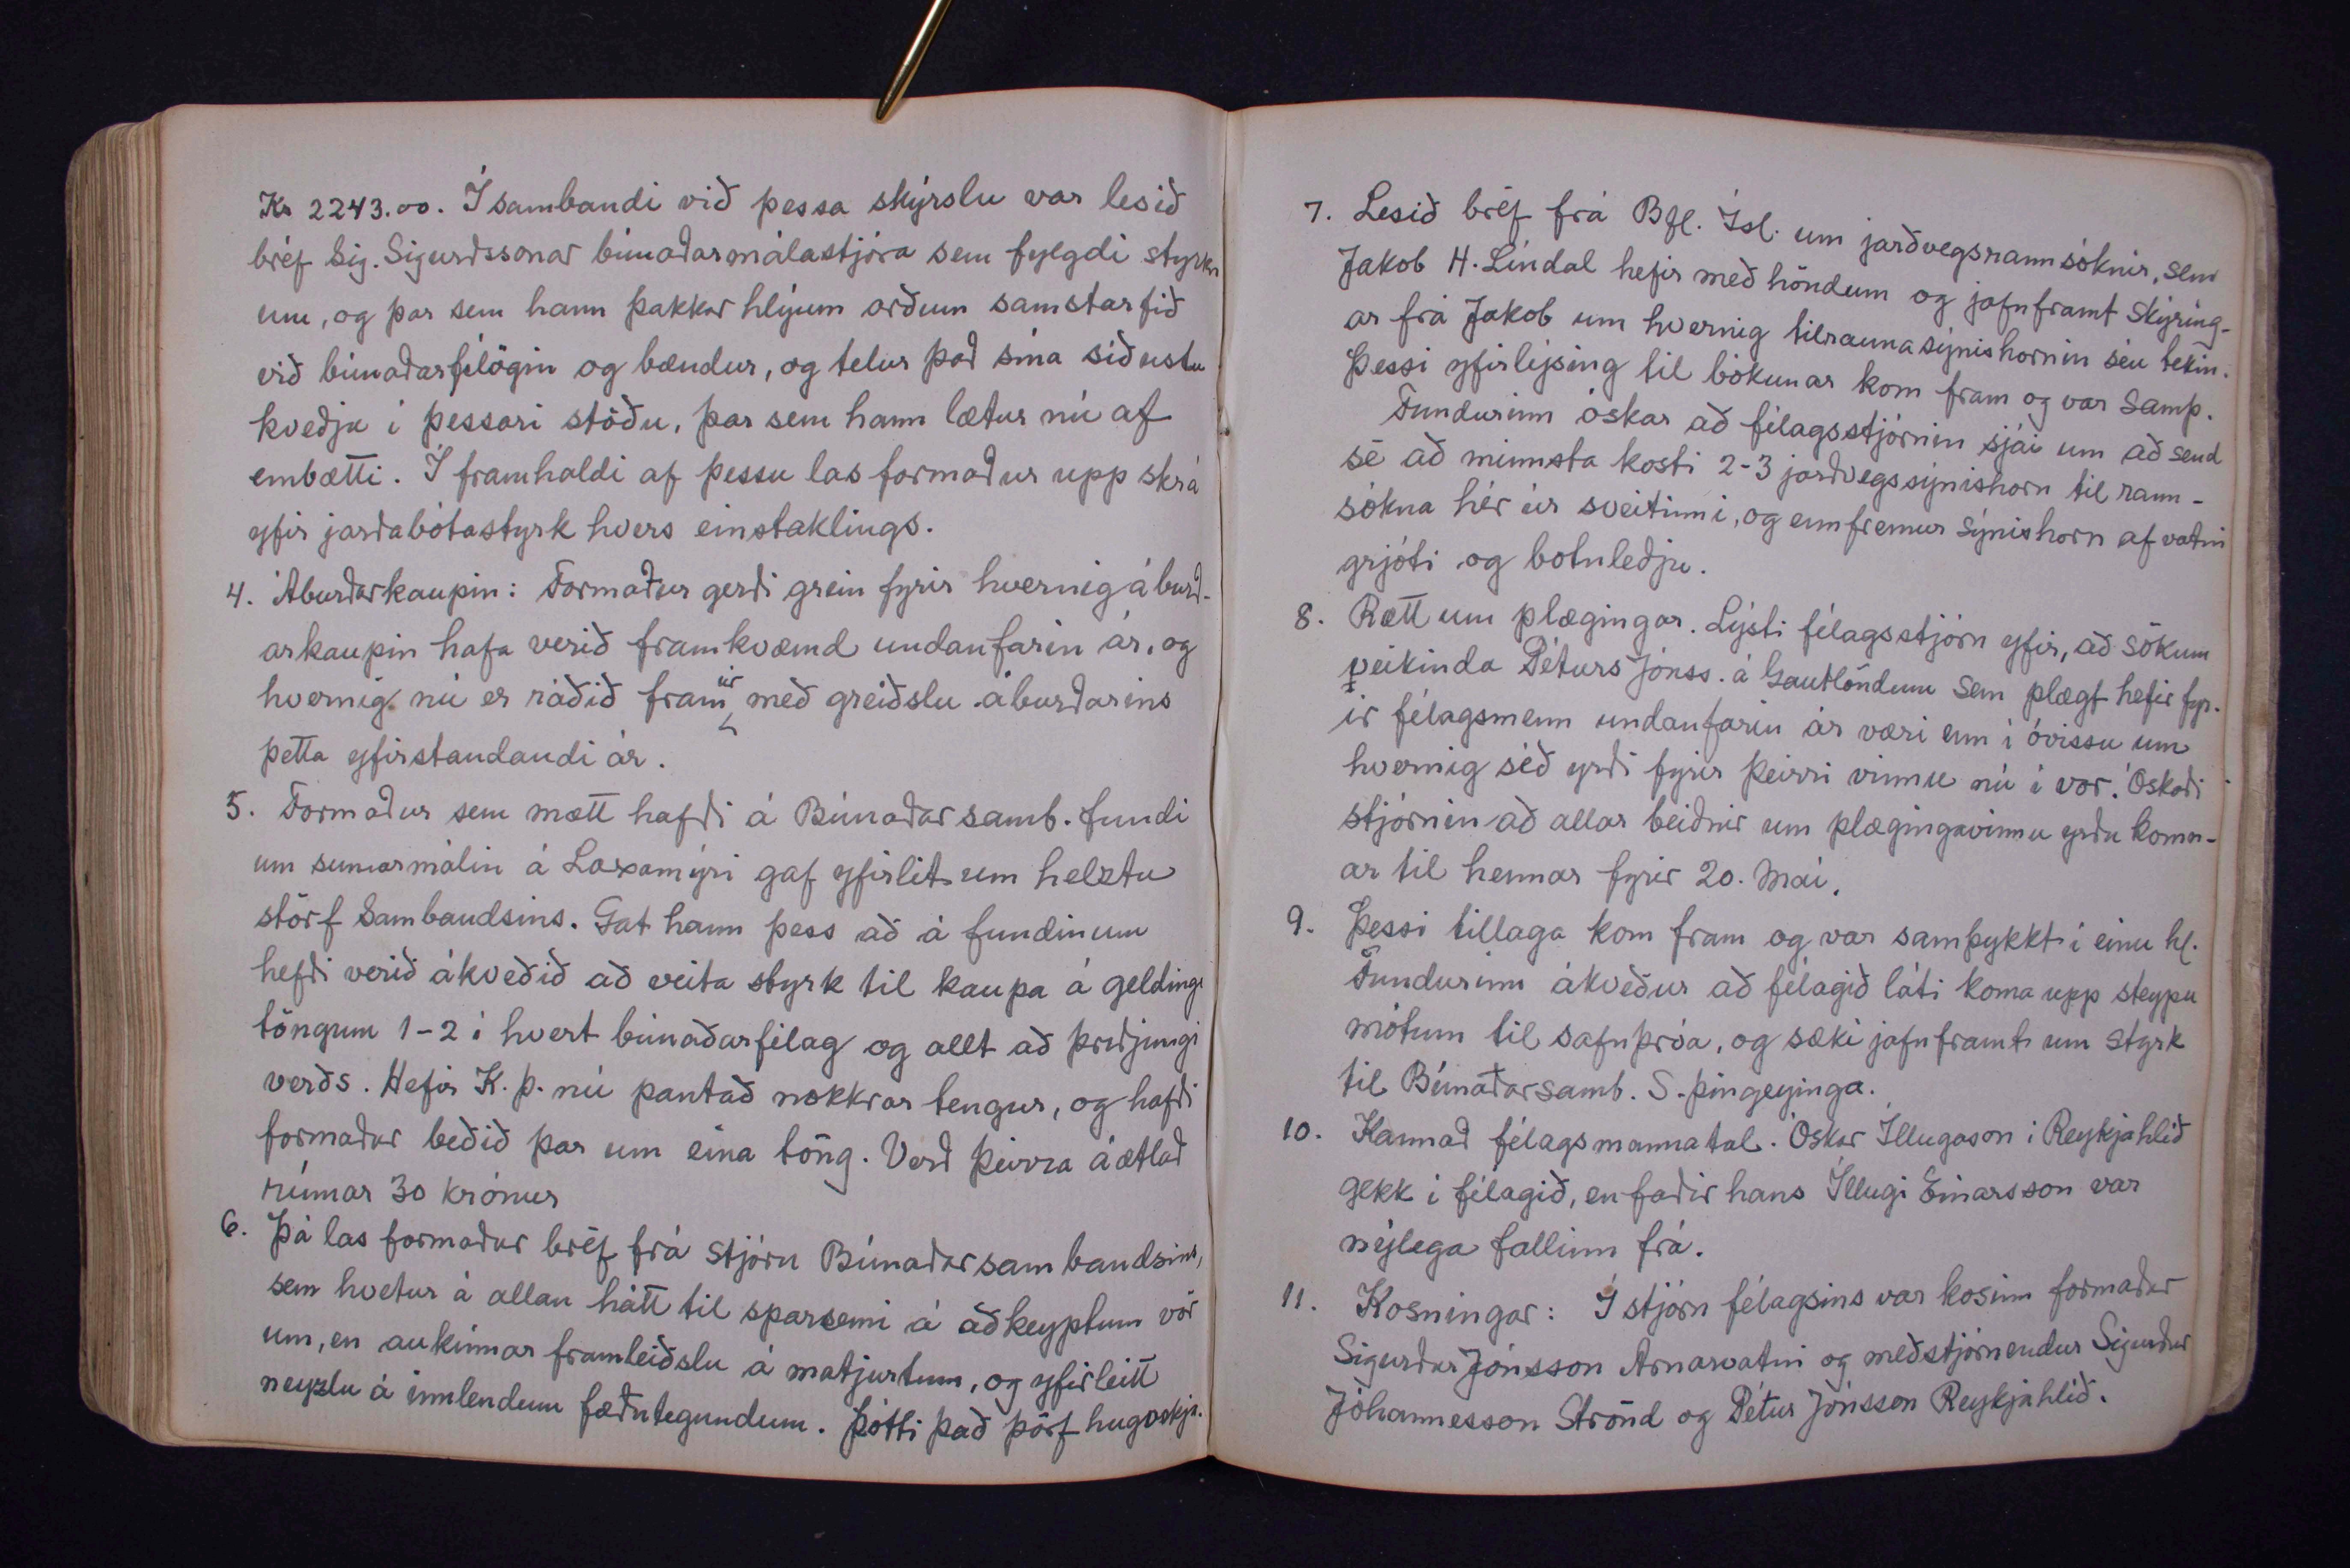 Kr 2243.00. Í sambandi við þessa skýrslu var lesið
bréf Sig. Sigurðssonar búnaðarmálastjóra sem fylgdi styrkn
um, og þar sem hann þakkar hlýum orðum samstarfið
við búnaðarfélögin og bændur, og telur það sína síðustu
kveðju í þessari stöðu, þar sem hann lætur nú af
embætti. Í framhaldi af þessu las formaður upp skrá
yfir jarðabótastyrk hvers einstaklings.
4. Áburðarkaupin: Formaður gerði grein fyrir hvernig áburð-
arkaupin hafa verið framkvæmd undanfarin ár, og
hvernig nú er ráðið fram úr með greiðslu áburðarins
þetta yfirstandandi ár.
5. Formaður sem mætt hafði á Búnaðarsamb. fundi
um sumarmálin á Laxamýri gaf yfirlit um helztu
störf Sambandsins. Gat hann þess að á fundinum
hefði verið ákveðið að veita styrk til kaupa á geldinga
töngum 1-2 í hvert búnaðarfélag og allt að þriðjungi
verðs. Hefir K. Þ. nú pantað nokkrar tengur, og hafði
formaður beðið þar um eina töng. Verð þeirra áætlað
rúmar 30 krónur
6. Þá las formaður bréf frá stjórn Búnaðarsambandsins,
sem hvetur á allan hátt til sparsemi á aðkeyptum vör
um, en aukinnar framleiðslu á matjurtum, og yfirleitt
neyzlu á innlendum fæðutegundum. Þótti það þörf hugvekja.
7. Lesið bréf frá Bfl. Ísl. um jarðvegsrannsóknir, sem
Jakob H. Líndal hefir með höndum og jafnframt skýring-
ar frá Jakob um hvernig tilraunasýnishornin séu tekin.
Þessi yfirlýsing til bókunar kom fram og var samþ.
Fundurinn óskar að félagsstjórnin sjái um að send
sé að minnsta kosti 2-3 jarðvegssýnishorn til rann-
sókna hér úr sveitinni, og ennfremur sýnishorn af vatni
grjóti og botnleðju.
8. Rætt um plægingar. Lýsti félagsstjórn yfir, að sökum
veikinda Péturs Jónss. á Gautlöndum sem plægt hefir fyr-
ir félagsmenn undanfarin ár væri enn í óvissu um
hvernig séð yrði fyrir þeirri vinnu nú í vor. Óskaði
stjórnin að allar beiðnir um plægingavinnu yrðu komn-
ar til hennar fyrir 20. Maí.
9. Þessi tillaga kom fram og var samþykkt í einu hl.
Fundurinn ákveður að félagið láti koma upp steypu
mótum til safnþróa, og sæki jafnframt um styrk
til Búnaðarsamb. S-þingeyinga.
10. Kannað félagsmannatal. Óskar Illugason í Reykjahlíð
gekk í félagið, en faðir hans Illugi Einarsson var
nýlega fallinn frá.
11. Kosningar: Í stjórn félagsins var kosinn formaður
Sigurður Jónsson Arnarvatni og meðstjórnendur Sigurður
Jóhannesson Strönd og Pétur Jónsson Reykjahlíð.